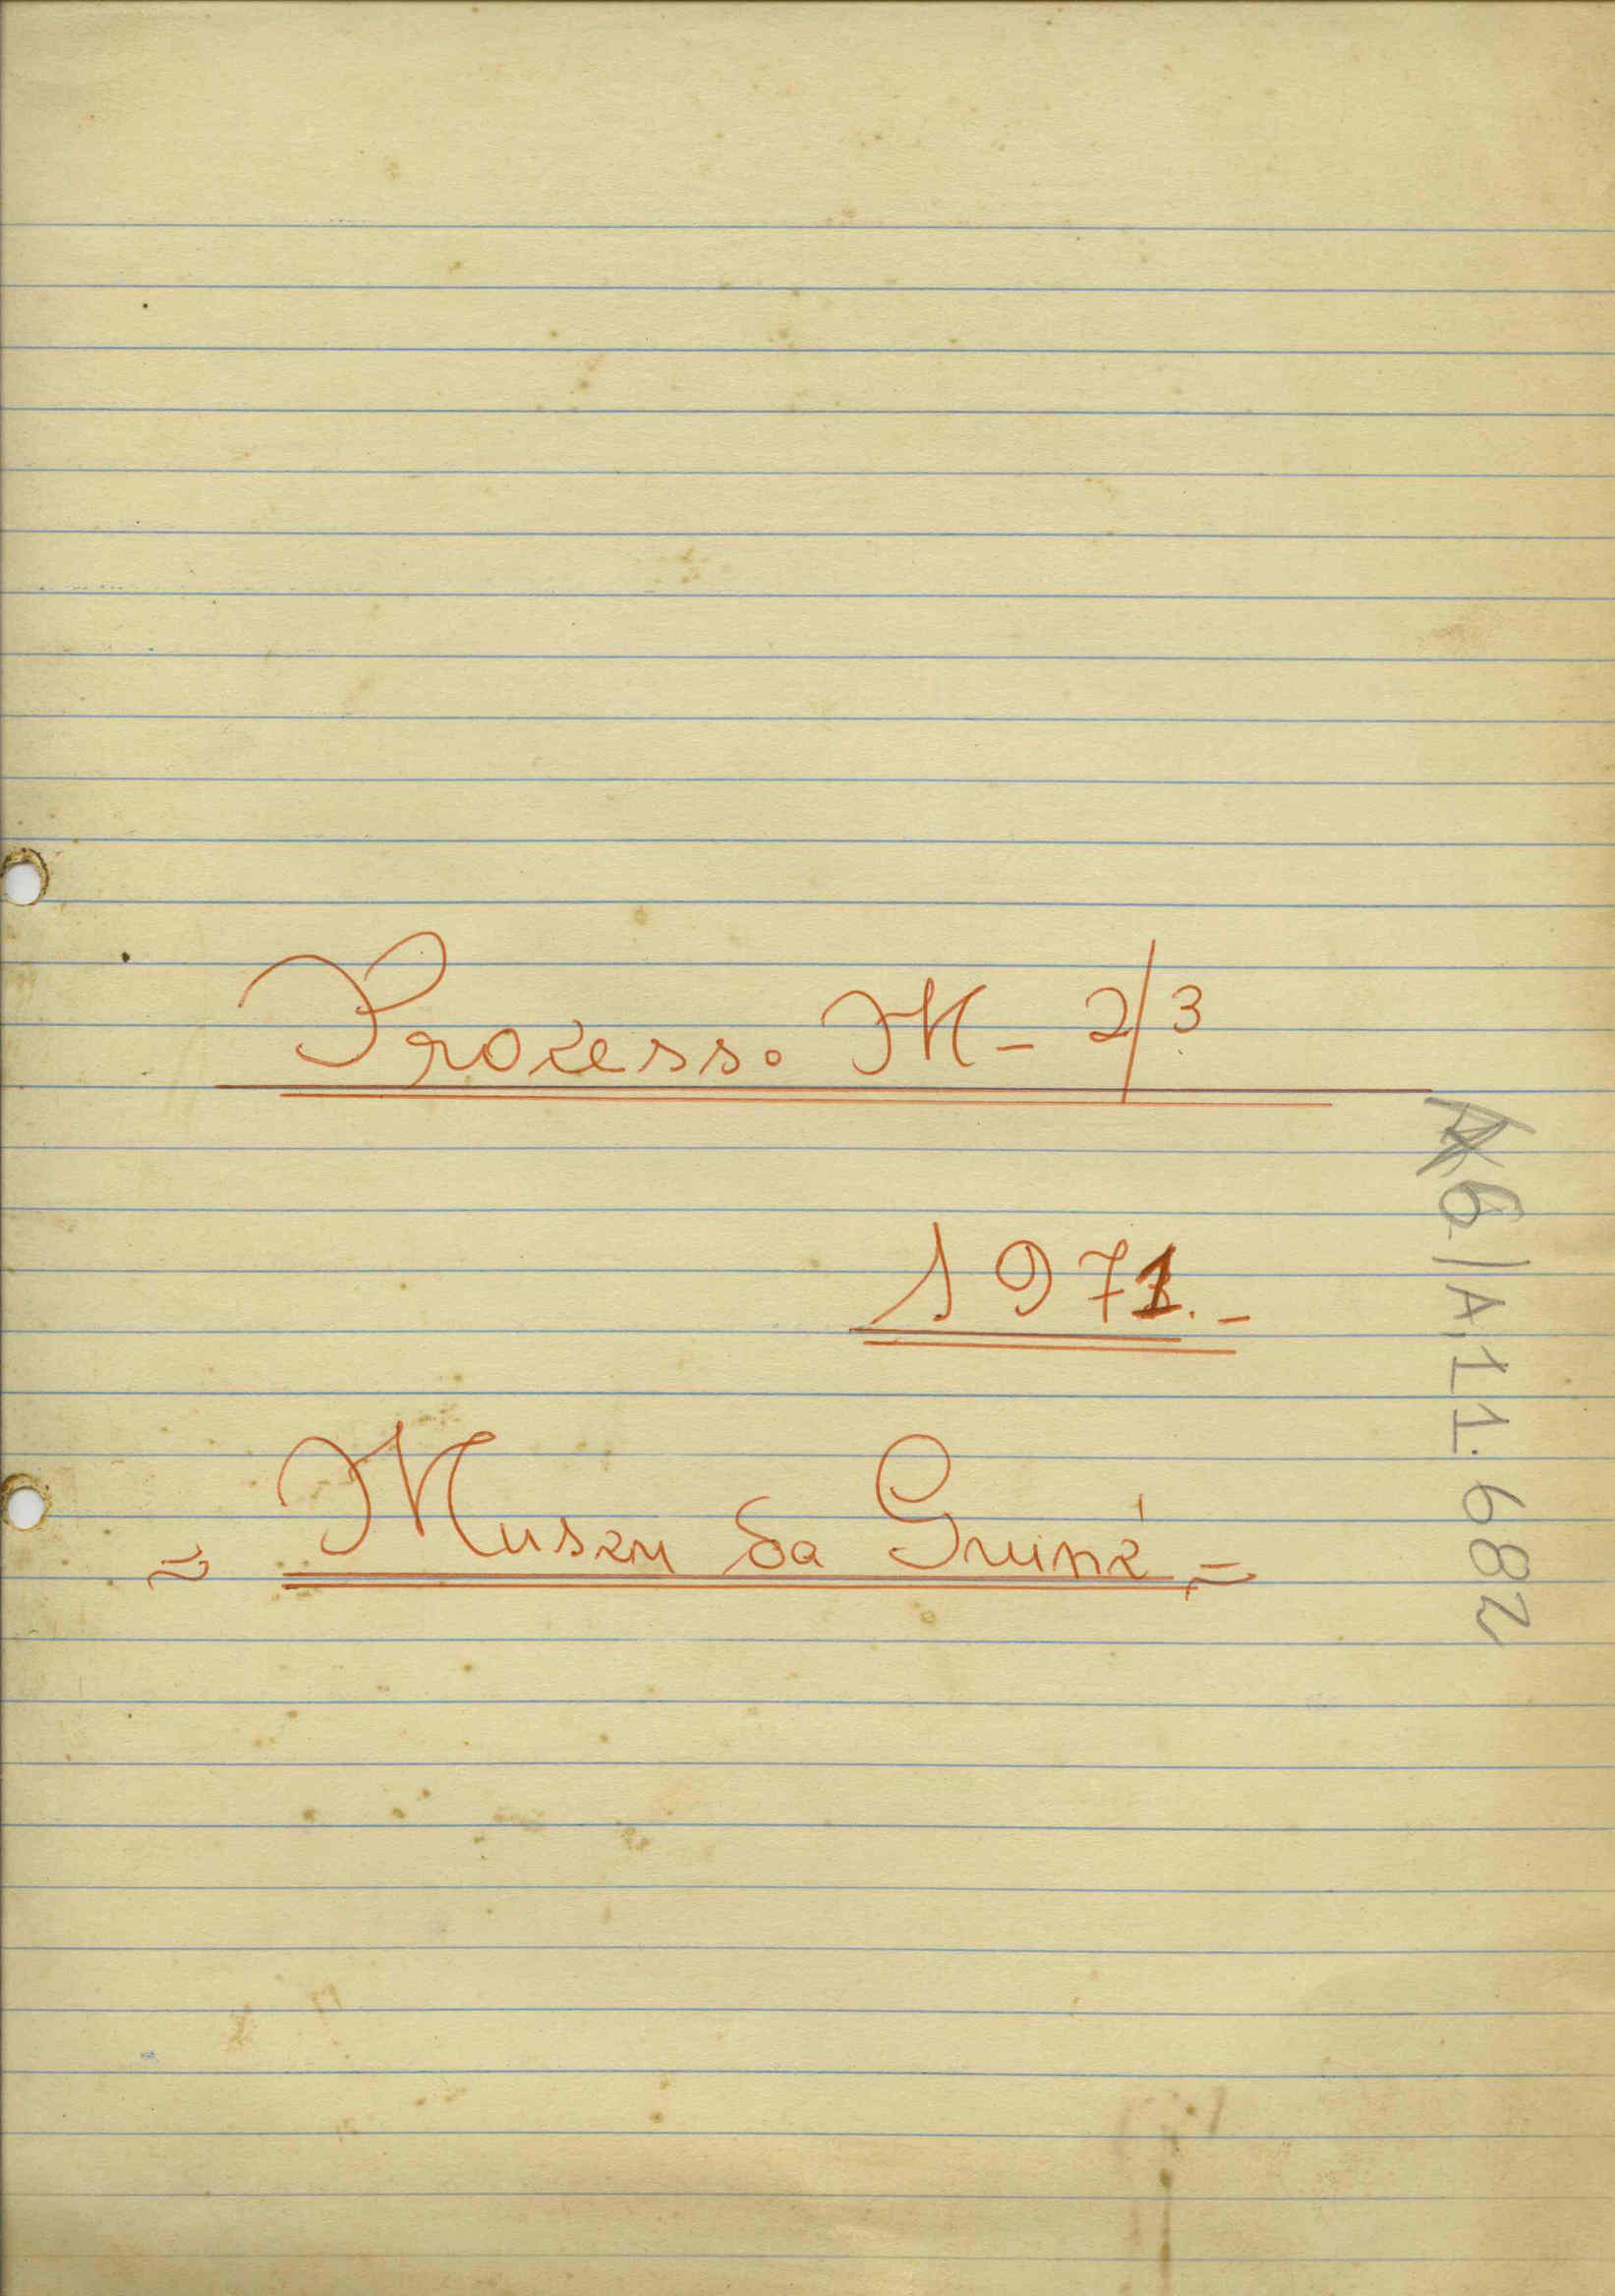 Processo M- 2/3
1971.-
= Museu da Guiné =
6/A.11.682